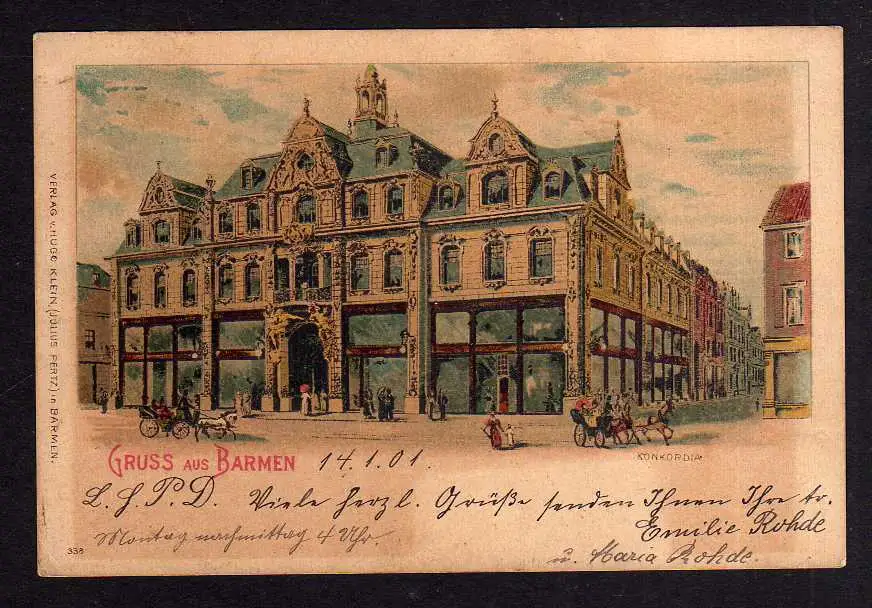 VERLAG v. HUGO KLEIN, (JULIUS PERTZ) in BARMEN.
KONKORDIA
GRUSS AUS BARMEN 14.1.01.
L. H. P. D. Viele herzl. Grüße senden Ihnen Ihre tr.
Emilie Rohde
Montag nachmittag 4 Uhr.
u. Maria Rohde.
338